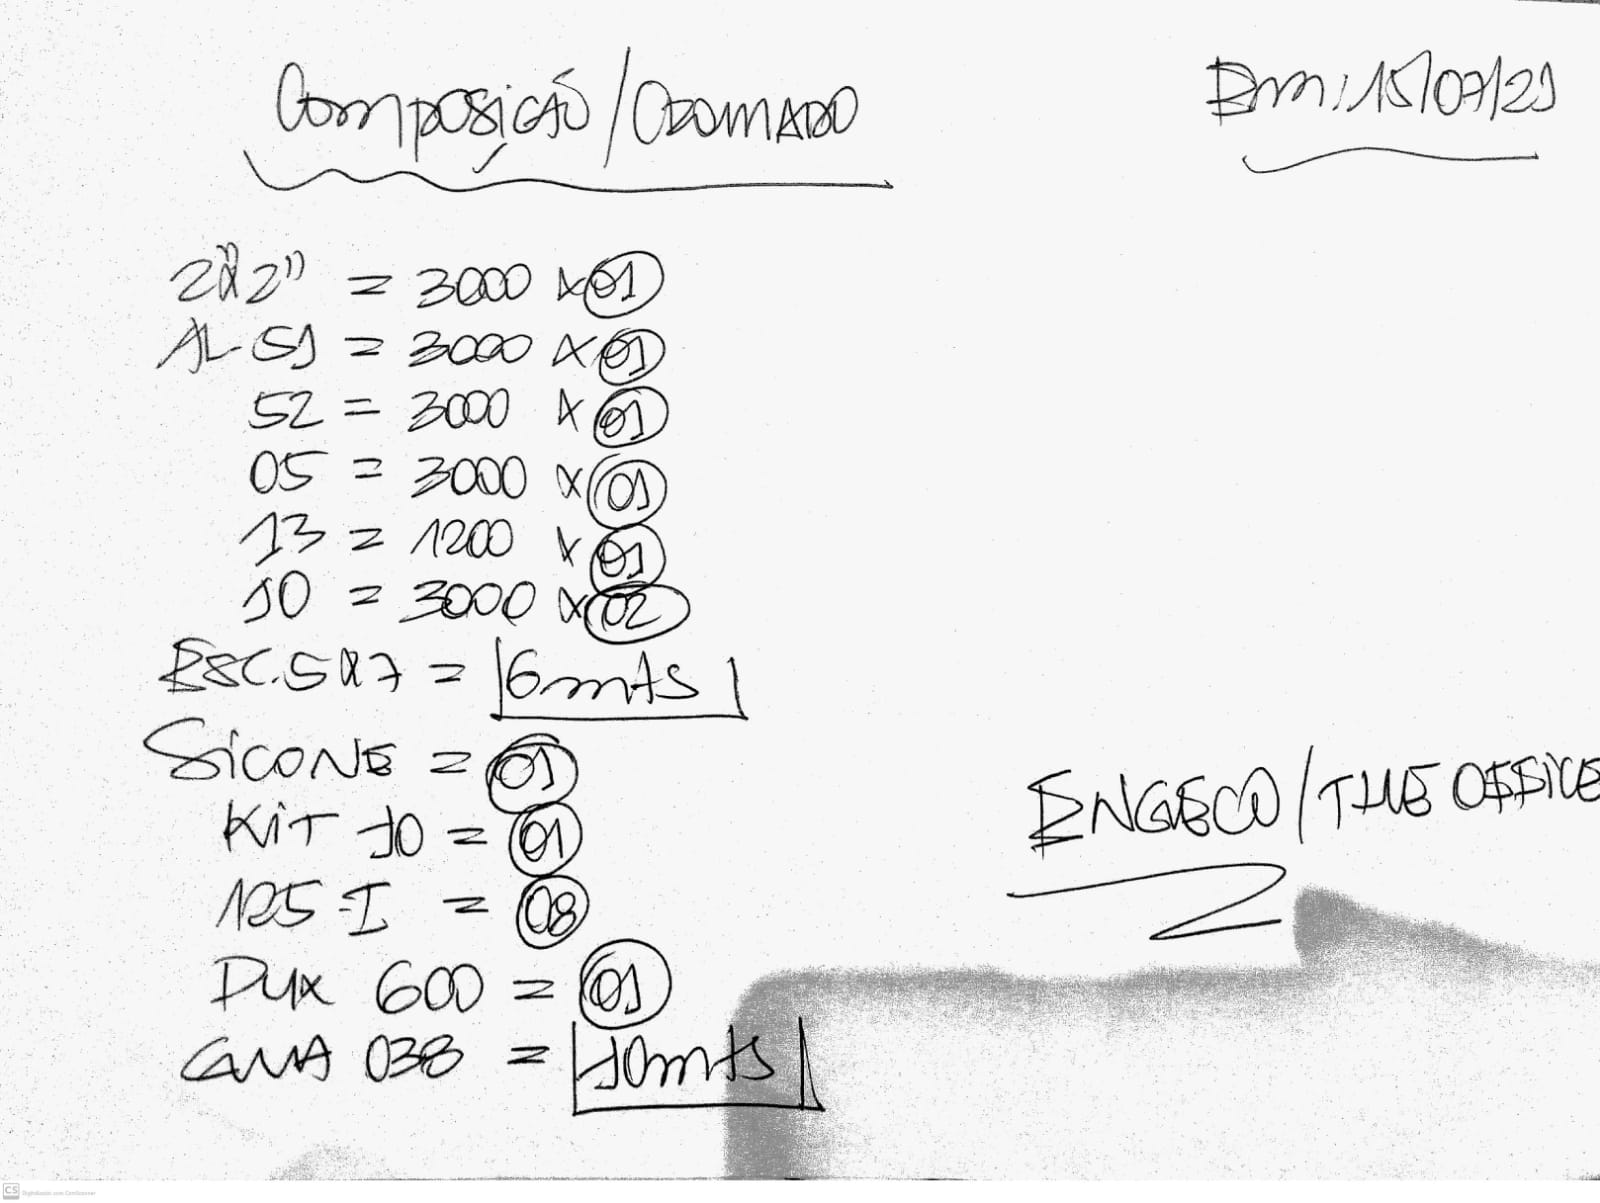 COMPOSIÇÃO / CROMADO
Em: 15/07/21
2"x2" = 3000 x 01
AL-51 = 3000 x 01
52 = 3000 x 01
05 = 3000 x 01
13 = 1200 x 01
10 = 3000 x 02
ESC. 5x7 = 6 mts
SiCONE = 01
KiT 10 = 01
125-I = 08
PUX 600 = 01
038 = 10 mts
ENGECO / THE OFFICE
CS Digitalizado com CamScanner